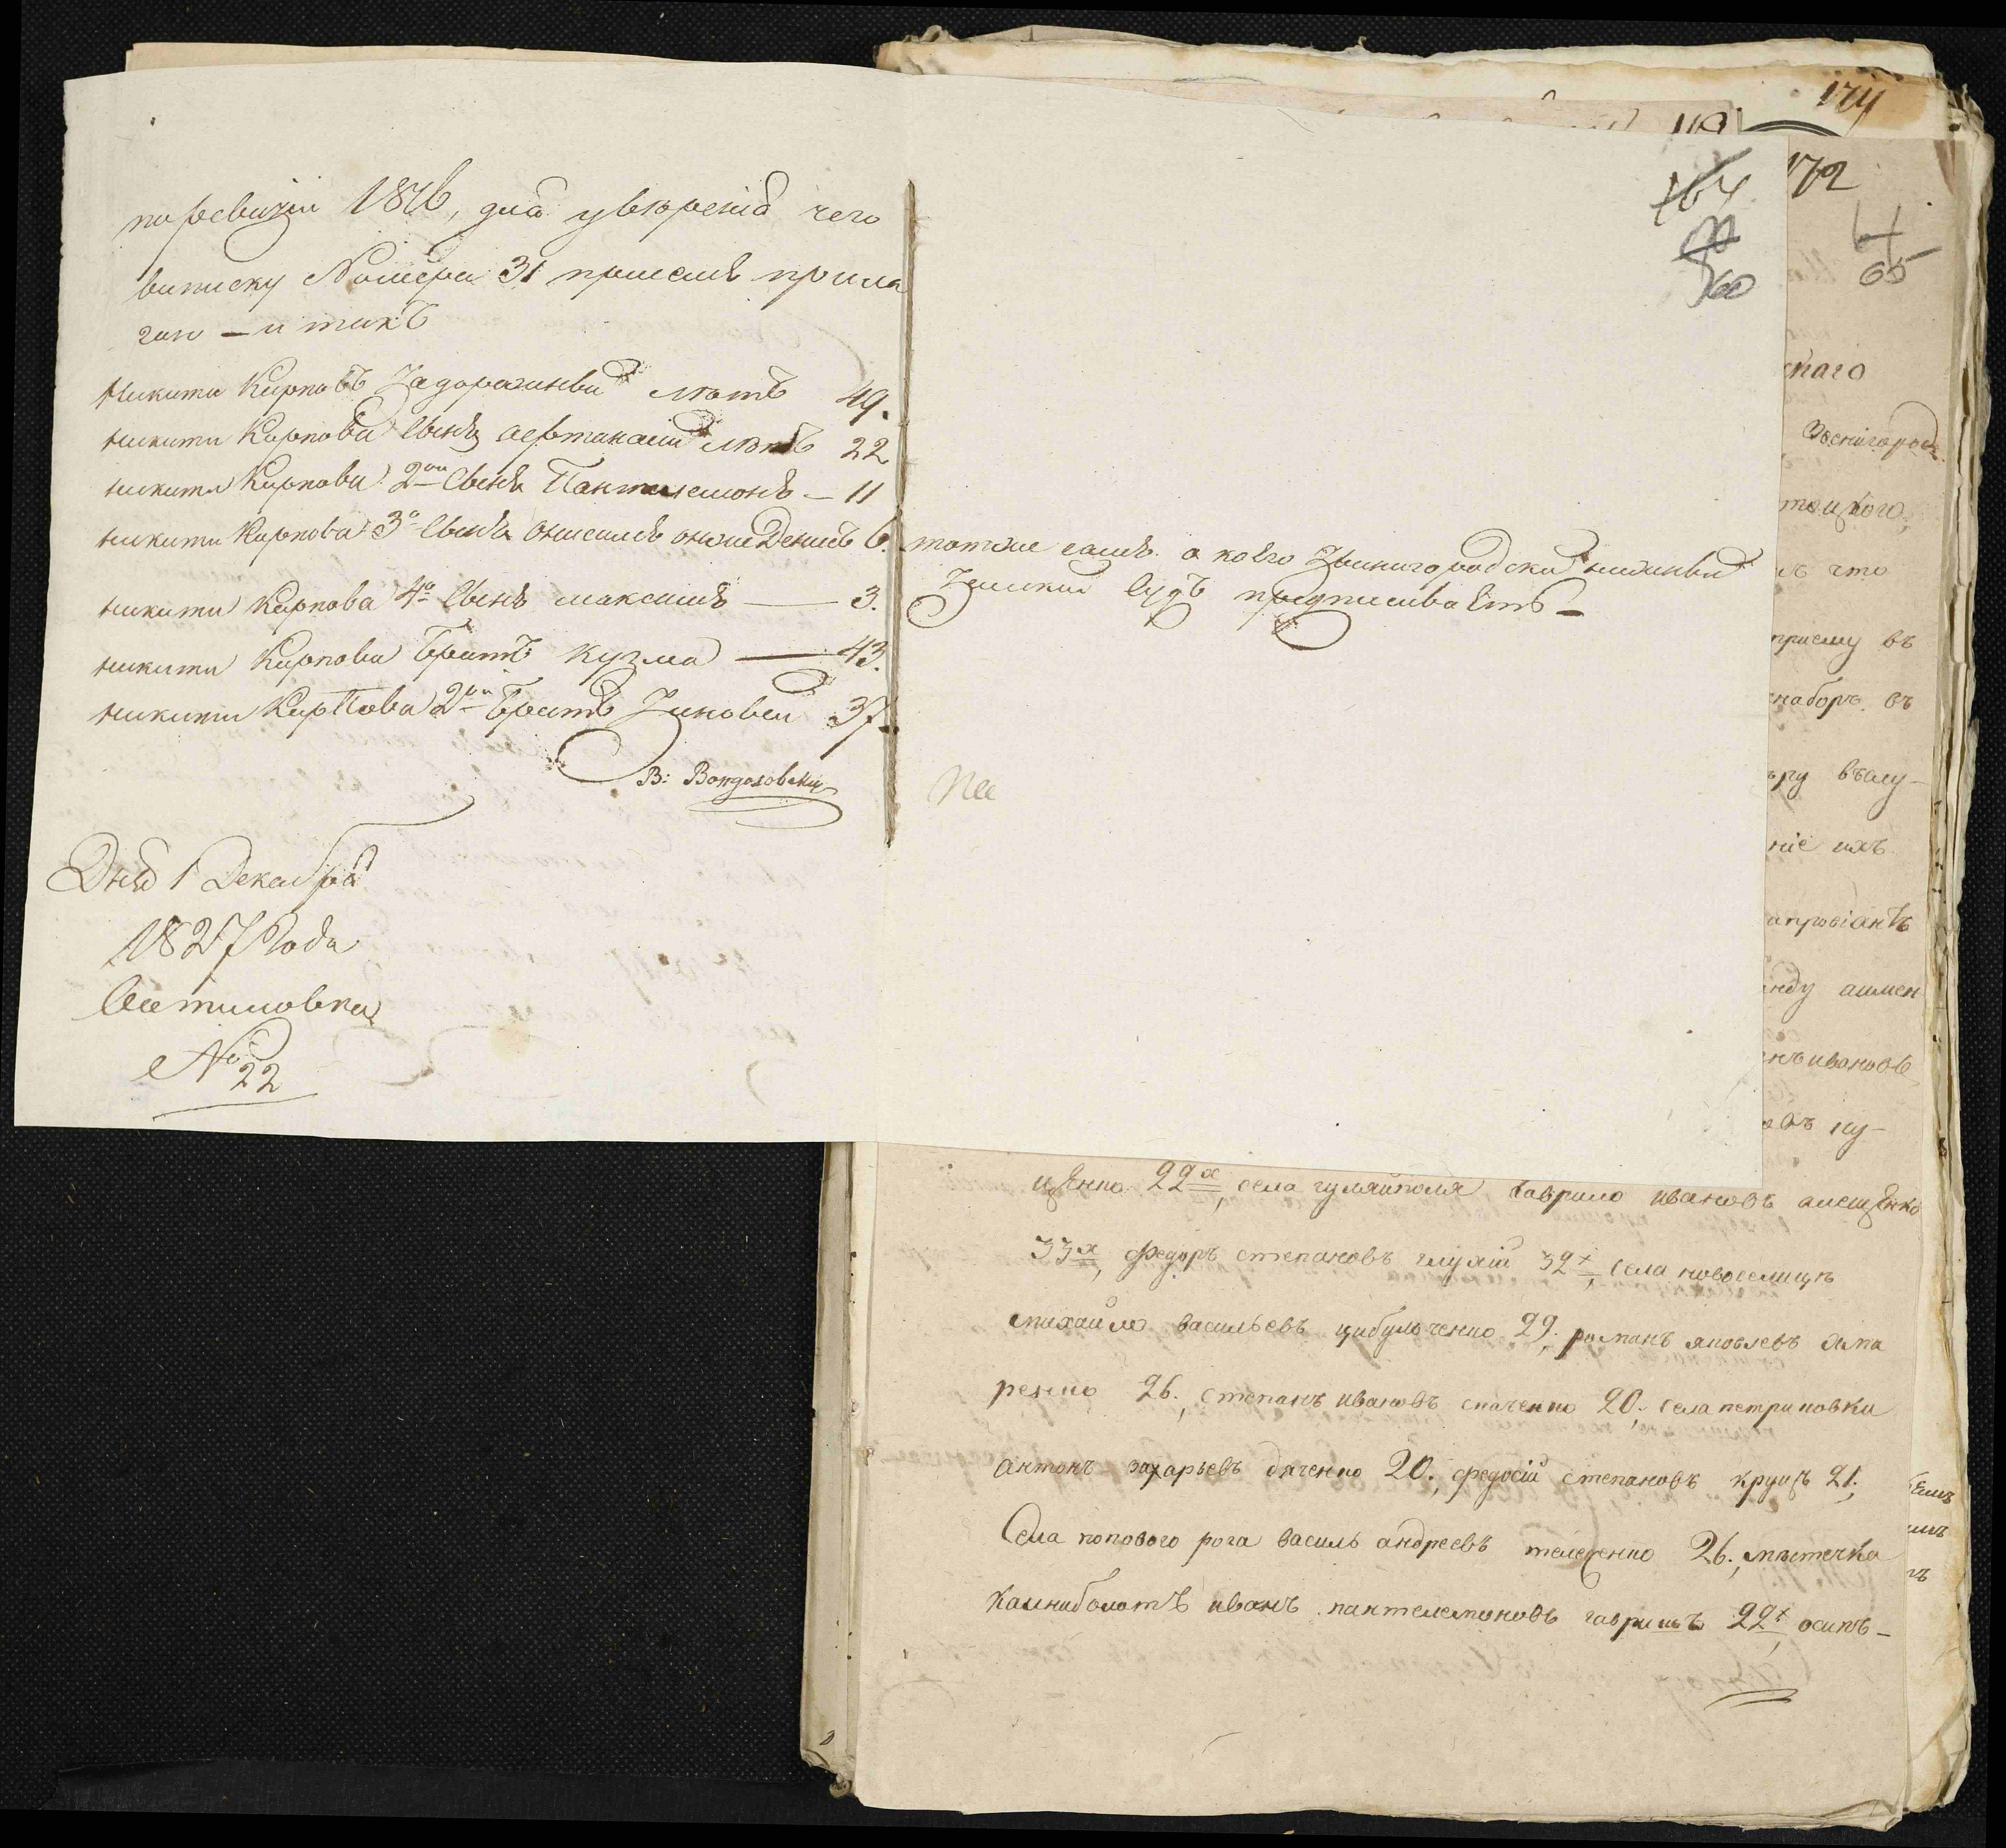 поревизіи 1816, для увѣренія чего
выписку Номера 31 присемъ прила
гаю — и такъ
Никита Карповъ Задорожный лѣтъ 49.
никити Карпова Сынъ лѣтъ 22
никити Карпова 2ой Сынъ Пантилемонъ — 11
никити Карпова 3й Сынъ Онисимъ онже Денисъ 6.
никити Карпова 4й Сынъ Максимъ — 3.
никити Карпова Братъ Кузма — 43.
никити Карпова 2ой Братъ Зиновей 37.
В: Вондоловски
Дня 1 Декабря
1827 Года
No 22
тотже самъ о коего Звинигородски нижный
Земский Судъ предписиваетъ —
164
60
174
119
172
65
скаго
Звенигород
тецкого,
что
приему въ
наборъ въ
ніе ихъ
апровіантъ
анду
нъ ивановъ
ку-
ценко 22х, села гуляйполя гаврило ивановъ алещенко
33х, Федоръ степановъ глухій 32х, села новоселицъ
михайло васильевъ цибульченко 29., романъ яковлевъ ямпа
ренко 26., степанъ ивановъ спаченко 20., села петриковки
антонъ захарьевъ дяченко 20., федосій степановъ круцъ 21.,
Села попового рога василь андреевъ тележенко 26., мѣстечка
Калниболотъ иванъ пантелемоновъ гавришъ 22х, осипъ —